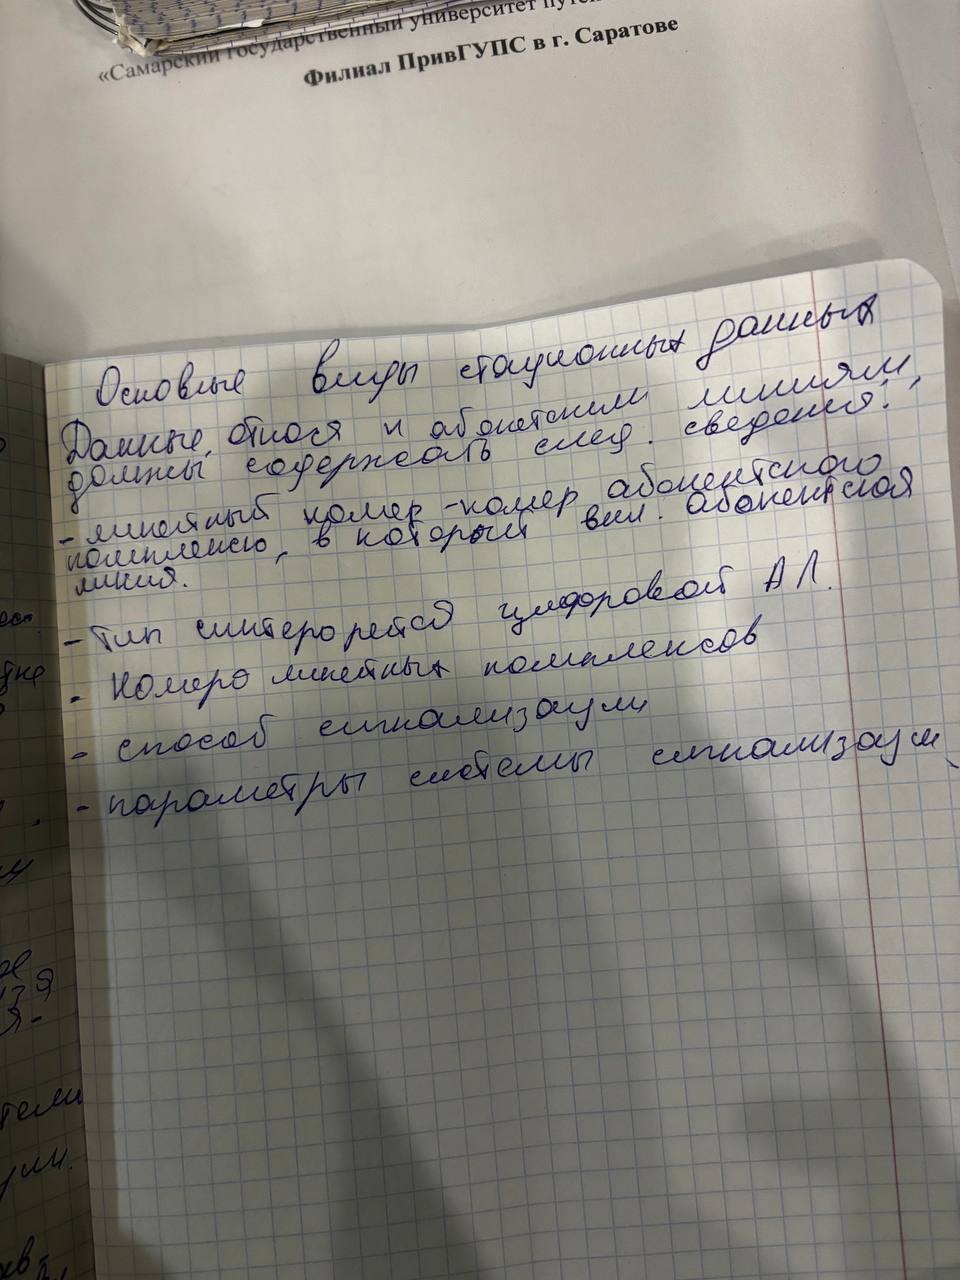 «Самарский государственный университет путе
Филиал ПривГУПС в г. Саратове
Основные виды стационных данных
Данные, относя к абонетским линиям,
должны содержать след. сведения:
- линейный номер - номер абонентского
комплексю, в которых вкл. абонентская
линия.
- Тип синтерорейса цифоровой АЛ.
- Номеро линейных комплексов
- способ сигнализации
- параметры системы сигнализации